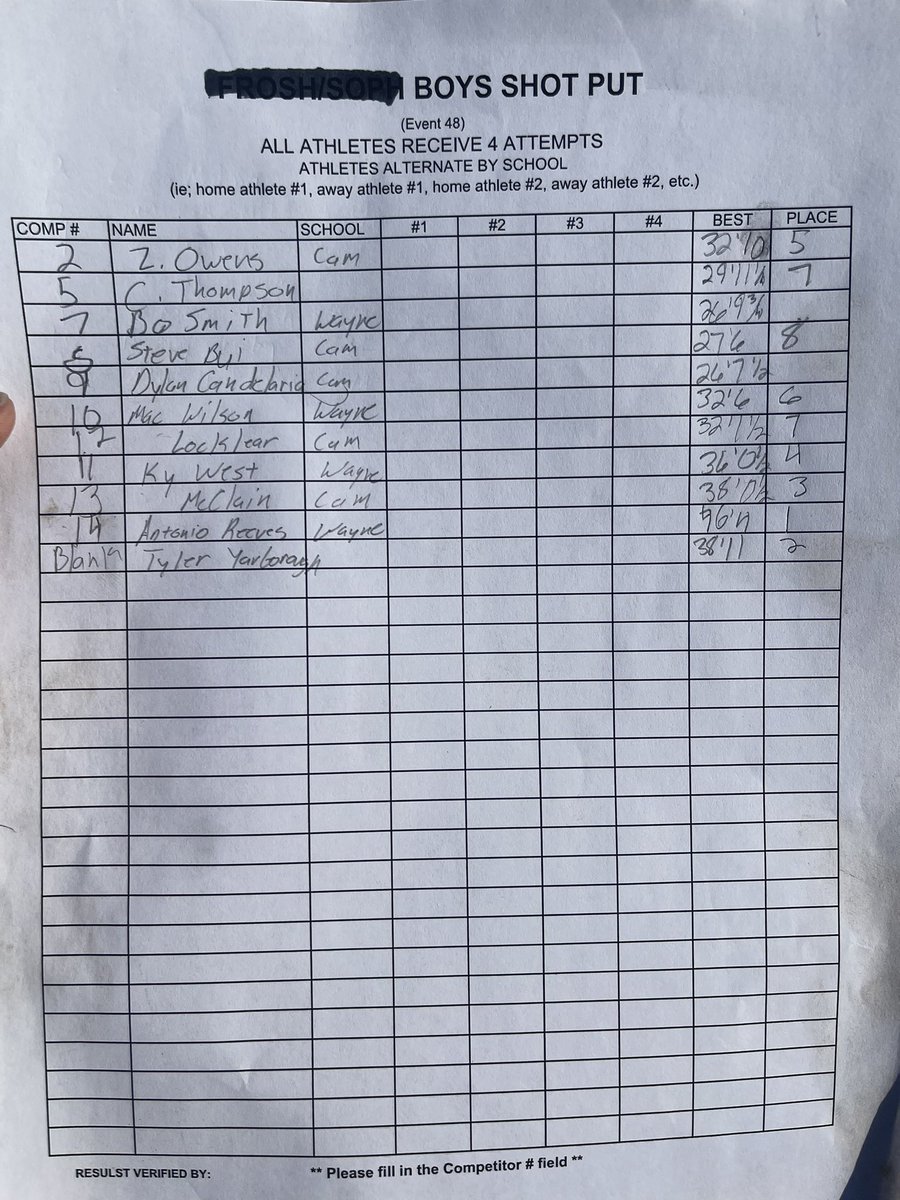 FROSH/SOPH BOYS SHOT PUT
(Event 48)
ALL ATHLETES RECEIVE 4 ATTEMPTS
ATHLETES ALTERNATE BY SCHOOL
(ie; home athlete #1, away athlete #1, home athlete #2, away athlete #2, etc.)
COMP # NAME SCHOOL #1 #2 #3 #4 BEST PLACE
2 Z. Owens Cam 32'10 5
5 C. Thompson 29'11½ 7
7 Bo Smith Wayne
Steve Bui Cam 27'6 8
9 Dylan Candelaria Cam 26'7½
10 Mac Wilson Wayne 32'6 6
12 Locklear Cam 32'1½ 7
11 Ky West Wayne 36'0½ 4
13 McClain Cam 38'0½ 3
14 Antonio Reeves Wayne 1
Blank Tyler Yarboragh 38'11 2
RESULST VERIFIED BY: ** Please fill in the Competitor # field **